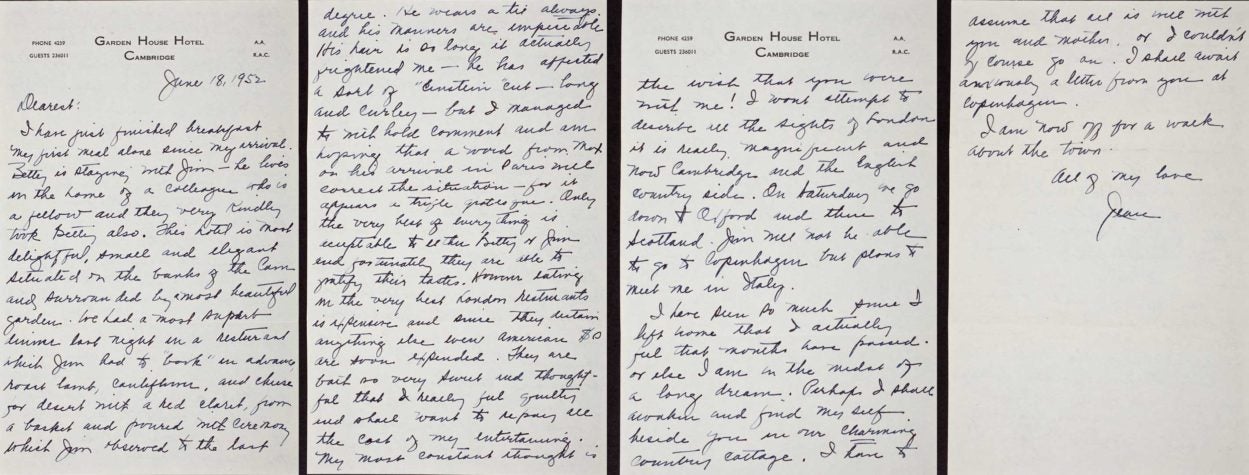 PHONE 4259
GUESTS 236011
GARDEN HOUSE HOTEL
CAMBRIDGE
A.A.
R.A.C.
June 18, 1952
Dearest:
I have just finished breakfast
my first meal alone since my arrival.
Betty is staying with Jim – he lives
in the home of a colleague who is
a fellow and they very kindly
took Betty also. This hotel is most
delightful, small and elegant
situated on the banks of the Cam
and surrounded by a most beautiful
garden. We had a most superb
dinner last night in a resturant
which Jim had to "book" in advance,
roast lamb, cauliflower, and cheese
for desert with a red claret, from
a basket and poured with ceremony
which Jim observed to the last
degree. He wears a tie always.
and his manners are impeccable
His hair is so long it actually
frightened me – he has affected
a sort of "Einstein" cut – long
and curley – but I managed
to withhold comment and am
hoping that a word from Max
on his arrival in Paris will
correct the situation – for it
appears a trifle grotesque. Only
the very best of everything is
acceptable to either Betty or Jim
and fortunately they are able to
gratify their tastes. However eating
in the very best London resturants
is expensive and since they disdain
anything else even American $
are soon expended. They are
both so very sweet and thought-
ful that I really feel guilty
and shall want to repay all
the cost of my entertaining.
My most constant thought is
PHONE 4259
GUESTS 236011
GARDEN HOUSE HOTEL
CAMBRIDGE
A.A.
R.A.C.
the wish that you were
with me! I wont attempt to
describe all the sights of London
it is really magnificent and
now Cambridge and the English
country side. On Saturday we go
down to Oxford and then to
Scotland. Jim will not be able
to go to Copenhagen but plans to
meet me in Italy.
I have seen so much since I
left home that I actually
feel that months have passed.
or else I am in the midst of
a long dream. Perhaps I shall
awaken and find my self
beside you in our charming
country cottage. I have to
assume that all is well with
you and mother, or I couldn't
of course go on. I shall await
anxiously a letter from you at
Copenhagen.
I am now off for a walk
about the town.
All of my love
Jean